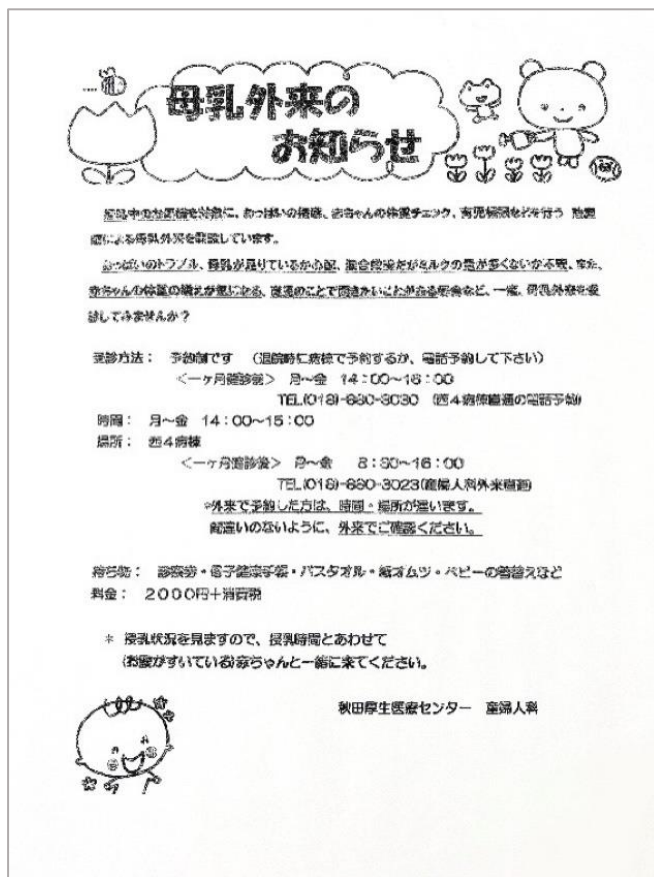 母乳外来の
お知らせ
授乳中のお母様を対象に、おっぱいの、赤ちゃんの体重チェック、育児相談などを行う 助産
師による母乳外来を開設しています。
おっぱいのトラブル、母乳が足りているか心配、混合栄養だがミルクの量が多くないか不安、また、
赤ちゃんの体重の増えが気になる、育児のことで聞きたいことがある場合など、一度、母乳外来を受
診してみませんか?
受診方法: 予約制です (退院時に病棟で予約するか、電話予約して下さい)
<一ヶ月健診前> 月~金 14:00~16:00
TEL(018)-880-3030 (西4病棟直通の電話予約)
時間: 月~金 14:00~15:00
場所: 西4病棟
<一ヶ月健診後> 月~金 8:30~16:00
TEL(018)-880-3023(産婦人科外来直通)
*外来で予約した方は、時間・場所が違います。
間違いのないように、外来でご確認ください。
持ち物: 診察券・母子健康手帳・バスタオル・紙オムツ・ベビーの着替えなど
料金: 2000円+消費税
* 授乳状況を見ますので、授乳時間とあわせて
(お腹がすいている)赤ちゃんと一緒に来てください。
秋田厚生医療センター 産婦人科